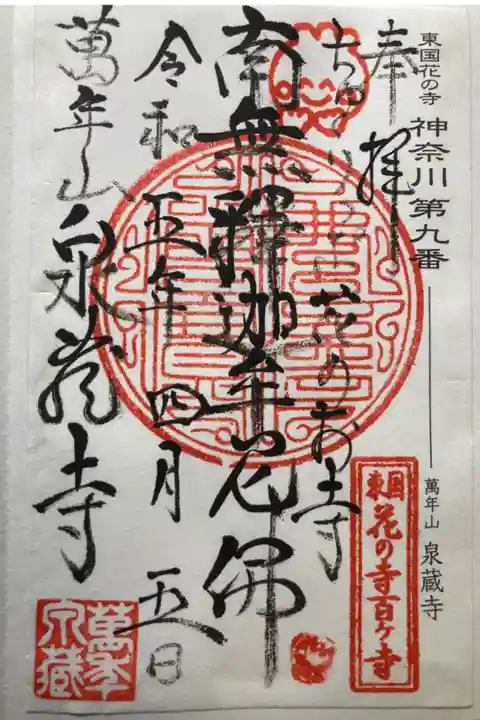 東国花の寺 神奈川第九番 萬年山 泉蔵寺
奉拝
花のお寺
南無釋迦牟尼佛
令和五年四月五日
萬年山泉蔵寺
東国花の寺百ヶ寺
萬年泉蔵